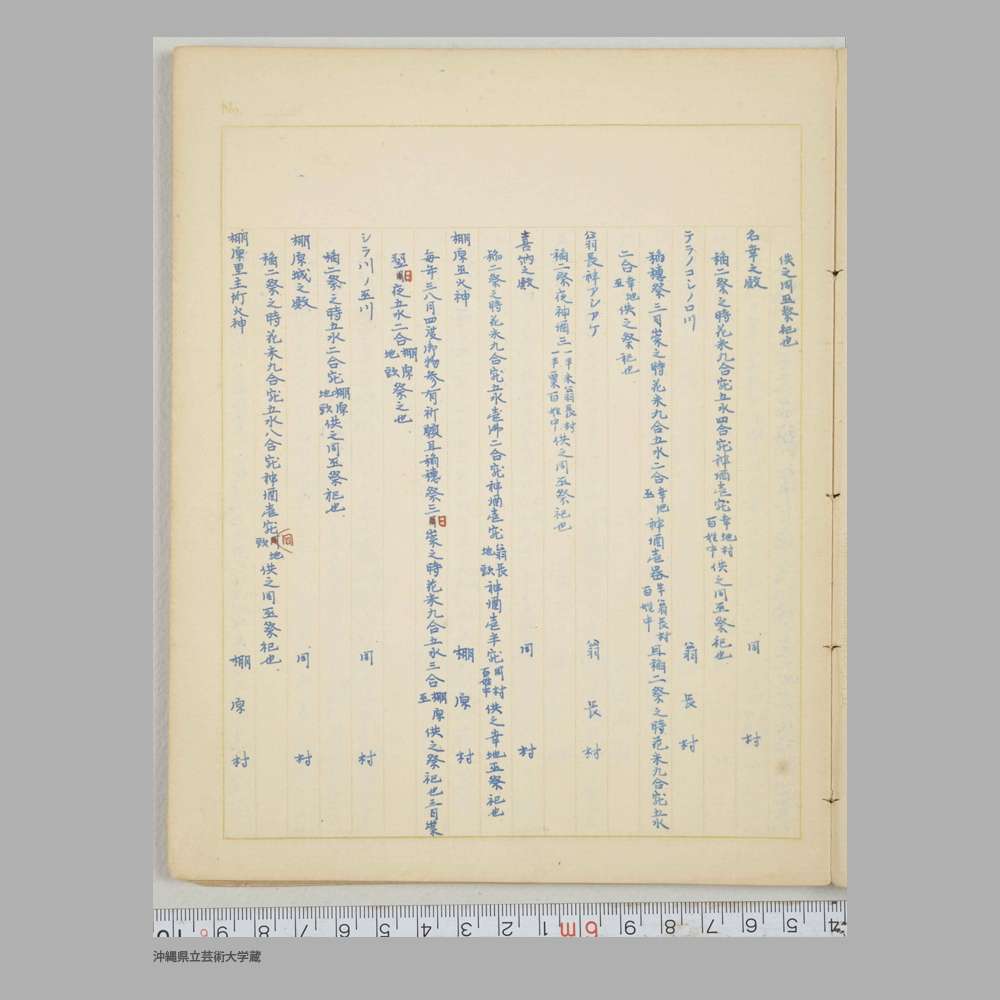 No.
供之同巫祭祀也
名幸之殿 同村
稲二祭之時花米九合宛五水四合宛神酒壱宛幸地村百姓中供之同巫祭祀也
テラノコシノロ川 翁長村
稲穂祭三日崇之時花米九合五水二合幸地巫神酒壱器半翁長村百姓中且稲二祭之時花米九合宛五水
二合幸地巫供之祭祀也
翁長神アシアケ 翁長村
稲二祭夜神酒三一半米翁長村一半粟百姓中供之同巫祭祀也
喜納之殿 同村
稲二祭之時花米九合宛五水壱沸二合宛神酒壱宛翁長地頭神酒壱半宛同村百姓中供之幸地巫祭祀也
棚原巫火神 棚原村
毎年三八月四度御物参有祈願且稲穂祭三日崇之時花米九合五水三合棚原巫供之祭祀也三日崇
翌日夜五水二合棚原地頭祭之也
シラ川ノ巫川 同村
稲二祭之時五水二合宛棚原地頭供之同巫祭祀也
棚原城之殿 同村
稲二祭之時花米九合宛五水八合宛神酒壱宛同地頭供之同巫祭祀也
棚原里主所火神 棚原村
沖縄県立芸術大学蔵